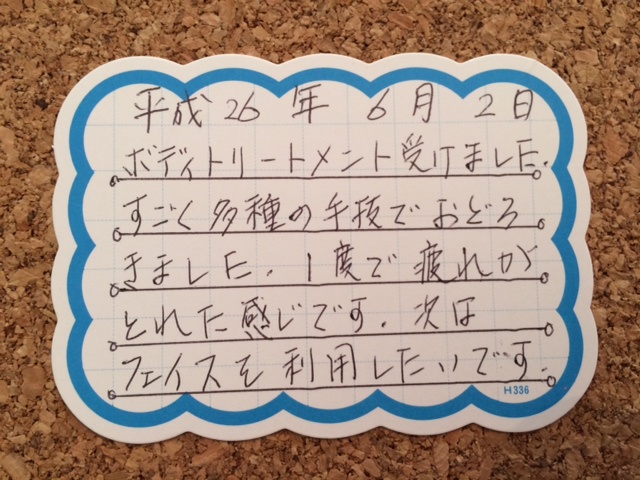 平成26年6月2日
ボディトリートメント受けました.
すごく多種の手技でおどろ
きました.1度で疲れが
とれた感じです.次は
フェイスを利用したいです.
H336